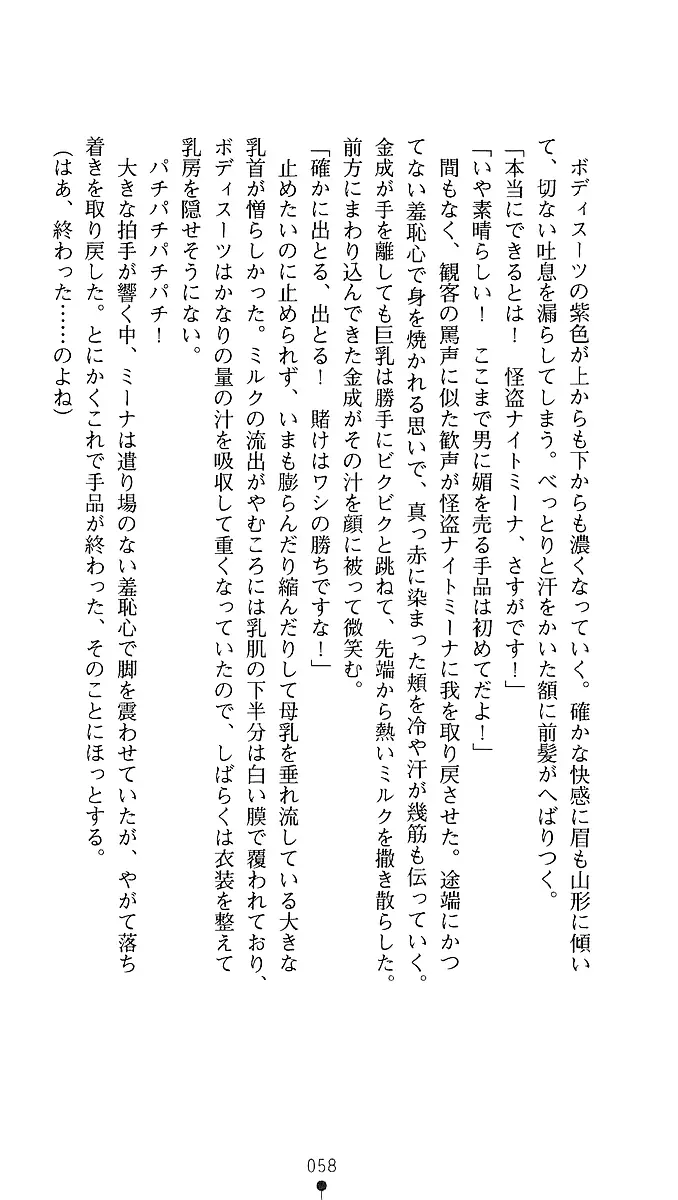 ボディスーツの紫色が上からも下からも濃くなっていく。確かな快感に眉も山形に傾い
て、切ない吐息を漏らしてしまう。べっとりと汗をかいた額に前髪がへばりつく。
「本当にできるとは！　怪盗ナイトミーナ、さすがです！」
「いや素晴らしい！　ここまで男に媚を売る手品は初めてだよ！」
間もなく、観客の罵声に似た歓声が怪盗ナイトミーナに我を取り戻させた。途端にかつ
てない羞恥心で身を焼かれる思いで、真っ赤に染まった頬を冷や汗が幾筋も伝っていく。
金成が手を離しても巨乳は勝手にビクビクと跳ねて、先端から熱いミルクを撒き散らした。
前方にまわり込んできた金成がその汁を顔に被って微笑む。
「確かに出とる、出とる！　賭けはワシの勝ちですな！」
止めたいのに止められず、いまも膨らんだり縮んだりして母乳を垂れ流している大きな
乳首が憎らしかった。ミルクの流出がやむころには乳肌の下半分は白い膜で覆われており、
ボディスーツはかなりの量の汁を吸収して重くなっていたので、しばらくは衣装を整えて
乳房を隠せそうにない。
パチパチパチパチ！
大きな拍手が響く中、ミーナは遣り場のない羞恥心で脚を震わせていたが、やがて落ち
着きを取り戻した。とにかくこれで手品が終わった、そのことにほっとする。
（はあ、終わった……のよね）
058